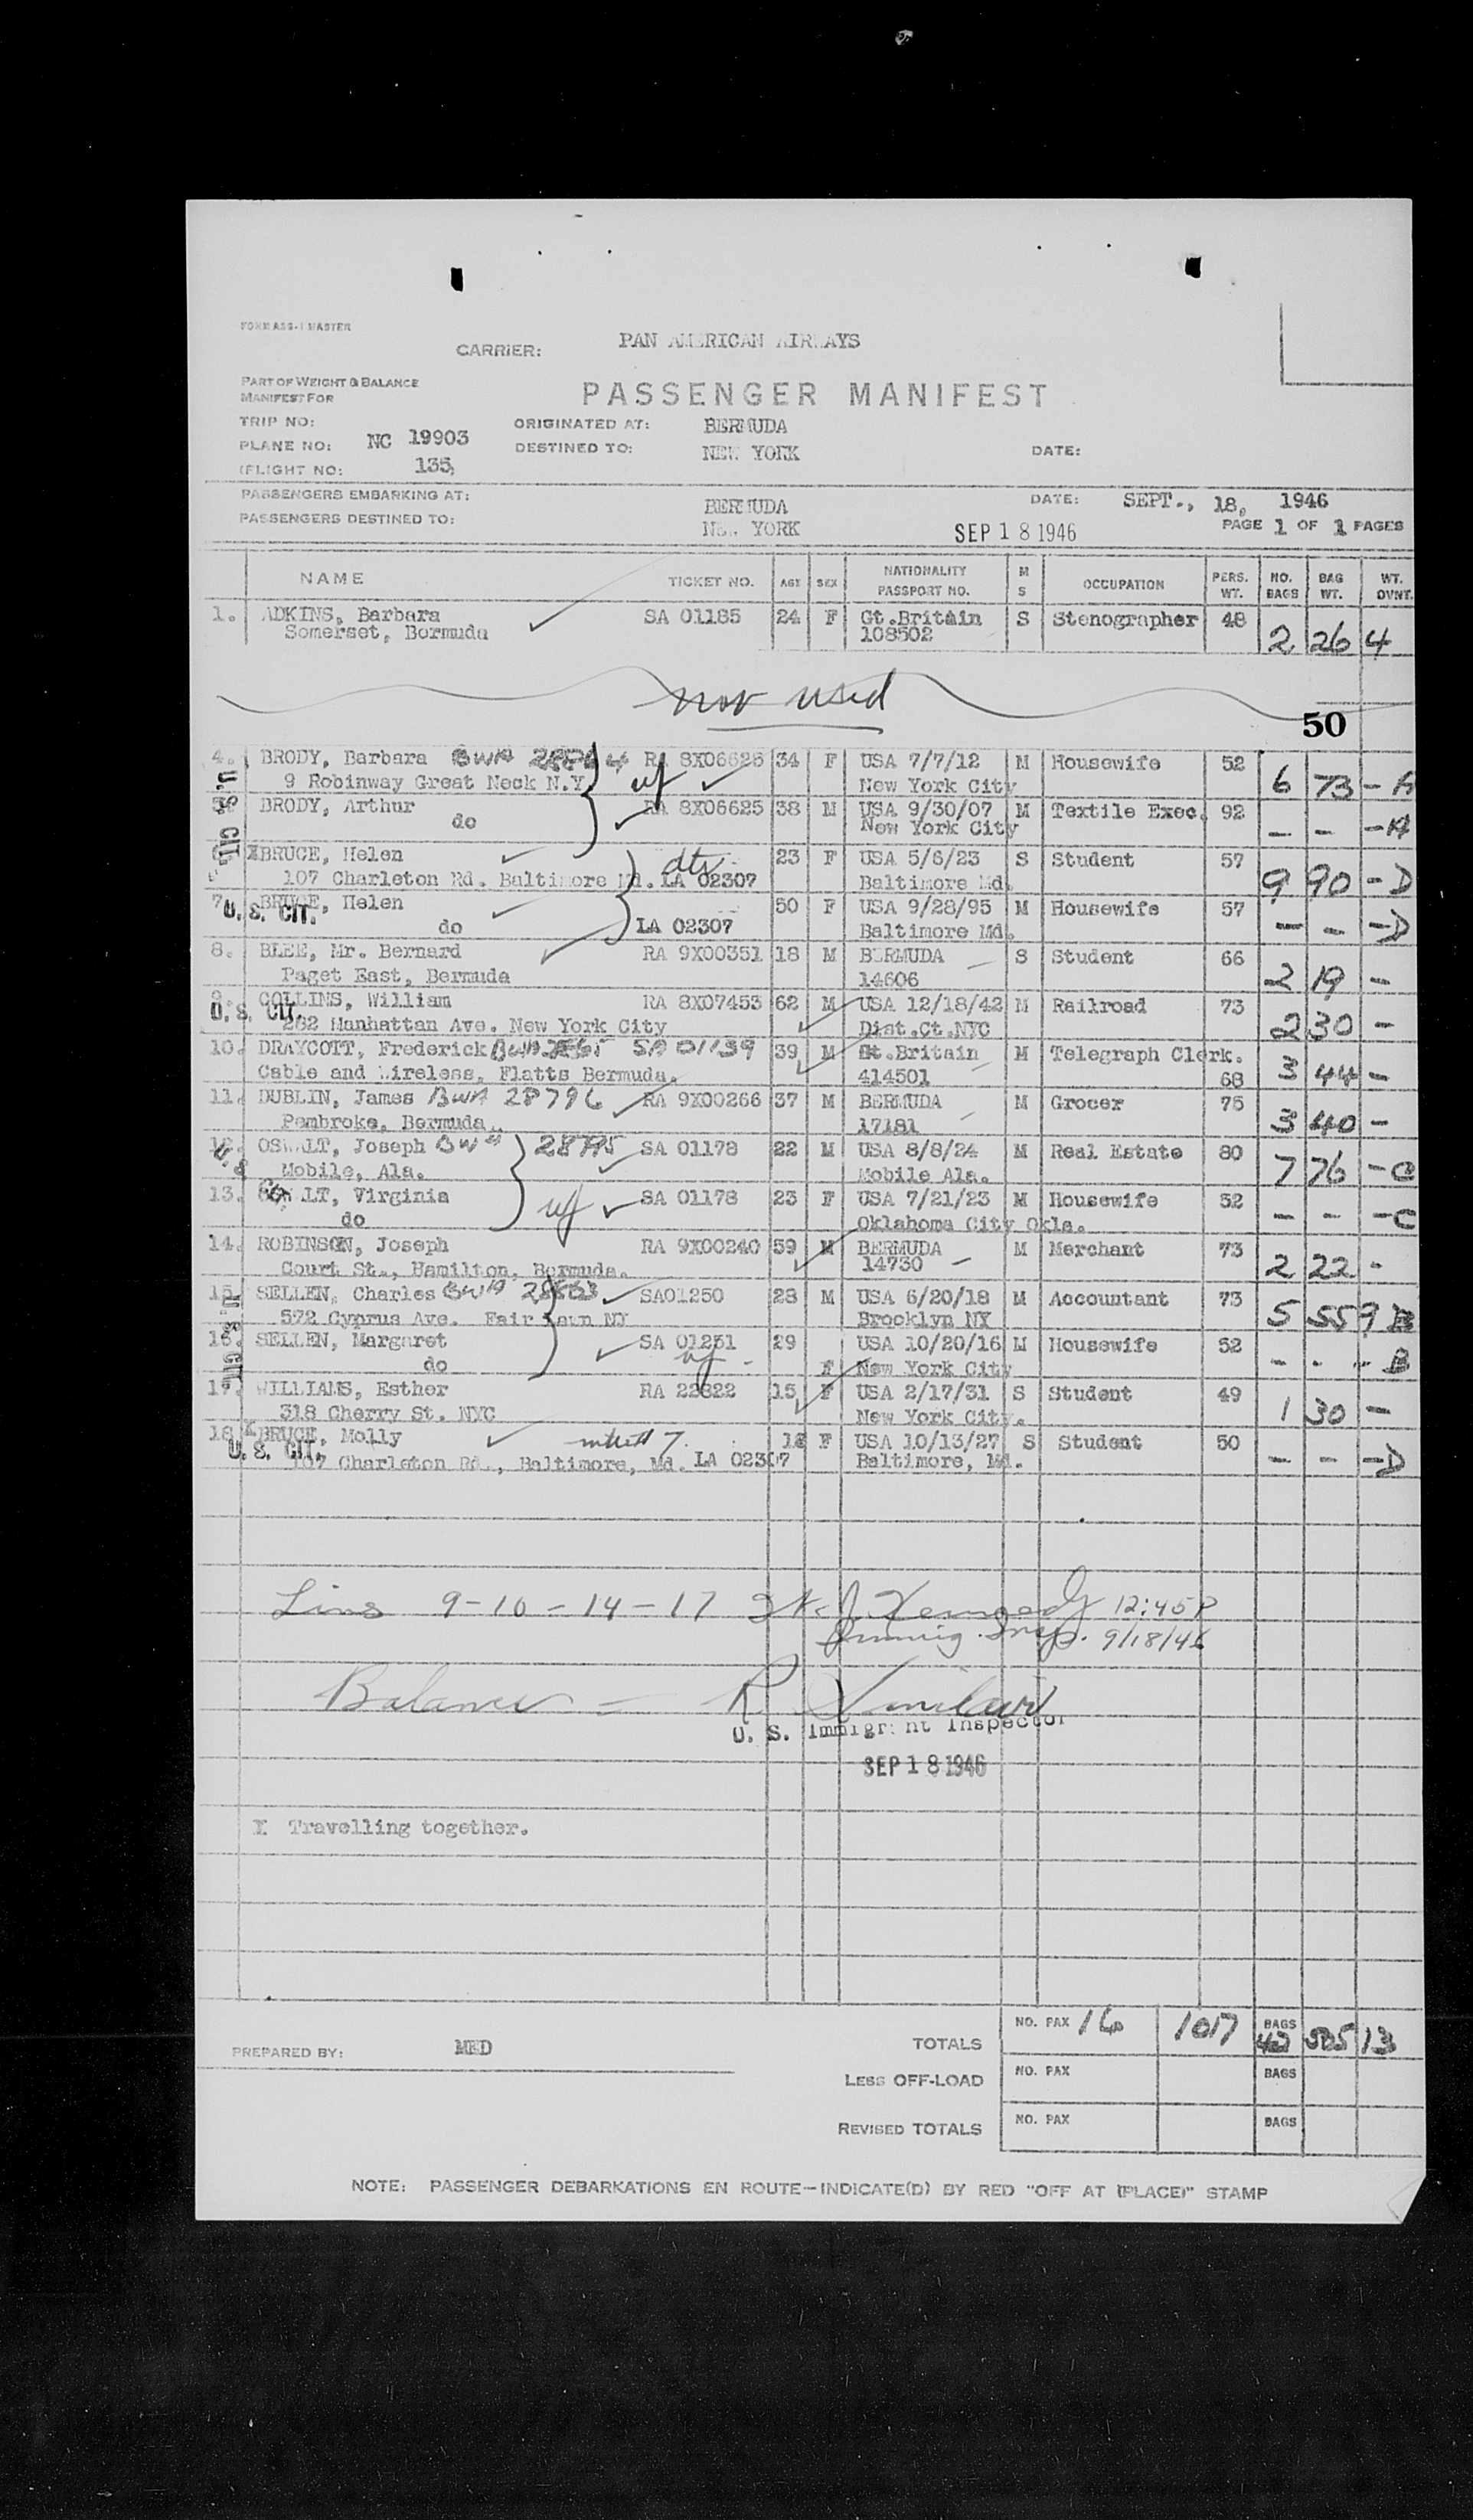 FORM ASS-1 MASTER
CARRIER: PAN AMERICAN AIRWAYS
PART OF WEIGHT & BALANCE
MANIFEST FOR
PASSENGER MANIFEST
TRIP NO:
ORIGINATED AT: BERMUDA
PLANE NO: NC 19903
DESTINED TO: NEW YORK DATE:
(FLIGHT NO: 135,
PASSENGERS EMBARKING AT: BERMUDA DATE: SEPT., 18, 1946
PASSENGERS DESTINED TO: NEW YORK SEP 18 1946 PAGE 1 OF 1 PAGES
NAME TICKET NO. AGE SEX NATIONALITY PASSPORT NO. M S OCCUPATION PERS. WT. NO. BAGS BAG WT. WT. OVNT.
1. ADKINS, Barbara SA 01185 24 F Gt.Britain S Stenographer 48
Somerset, Bermuda 108502 2 26 4
not used
50
4. BRODY, Barbara BWA RA 8X06626 34 F USA 7/7/12 M Housewife 52
9 Robinway Great Neck N.Y. New York City 6 73 - A
BRODY, Arthur RA 8X06625 38 M USA 9/30/07 M Textile Exec. 92
do New York City - - - A
U.S. CIT.
X BRUCE, Helen 23 F USA 5/6/23 S Student 57
107 Charleton Rd. Baltimore Md. LA 02307 Baltimore Md. 9 90 - D
7. BRUCE, Helen 50 F USA 9/28/95 M Housewife 57
U. S. CIT. do LA 02307 Baltimore Md. - - - D
8. BLEE, Mr. Bernard RA 9X00351 18 M BERMUDA S Student 66
Paget East, Bermuda 14606 2 19 -
9. COLLINS, William RA 8X07453 62 M USA 12/18/42 M Railroad 73
U. S. CIT. 282 Manhattan Ave. New York City Dist.Ct.NYC 2 30 -
10. DRAYCOTT, Frederick BWA SA 01139 39 M Gt.Britain M Telegraph Clerk.
Cable and Wireless, Flatts Bermuda. 414501 68 3 44 -
11. DUBLIN, James BWA 28796 RA 9X00266 37 M BERMUDA M Grocer 75
Pembroke, Bermuda. 17181 3 40 -
12. OSWALT, Joseph BWA 28795 SA 01178 22 M USA 8/8/24 M Real Estate 80
Mobile, Ala. Mobile Ala. 7 76 - C
13. OSWALT, Virginia SA 01178 23 F USA 7/21/23 M Housewife 52
do Oklahoma City Okla. - - - C
14. ROBINSON, Joseph RA 9X00240 59 M BERMUDA M Merchant 73
Court St., Hamilton, Bermuda. 14730 2 22 -
15. SELLEN, Charles BWA SA01250 28 M USA 6/20/18 M Accountant 73
572 Cyprus Ave. Fair Lawn NY Brooklyn NY 5 55 9 B
16. SELLEN, Margaret SA 01251 29 USA 10/20/16 M Housewife 52
do F New York City - - - B
17. WILLIAMS, Esther RA 22322 15 F USA 2/17/31 S Student 49
318 Cherry St. NYC New York City. 1 30 -
18. X BRUCE, Molly 18 F USA 10/13/27 S Student 50
U. S. CIT. 107 Charleton Rd., Baltimore, Md. LA 02307 Baltimore, Md. - - - D
Lins 9-10-14-17 J Kennedy 12:45P
Immig. Insp. 9/18/46
Balance - R
U. S. Immigrant Inspector
SEP 18 1946
X Travelling together.
TOTALS NO. PAX 16 1017 BAGS 42 505 13
PREPARED BY: MED
LESS OFF-LOAD NO. PAX BAGS
REVISED TOTALS NO. PAX BAGS
NOTE: PASSENGER DEBARKATIONS EN ROUTE—INDICATE(D) BY RED "OFF AT (PLACE)" STAMP